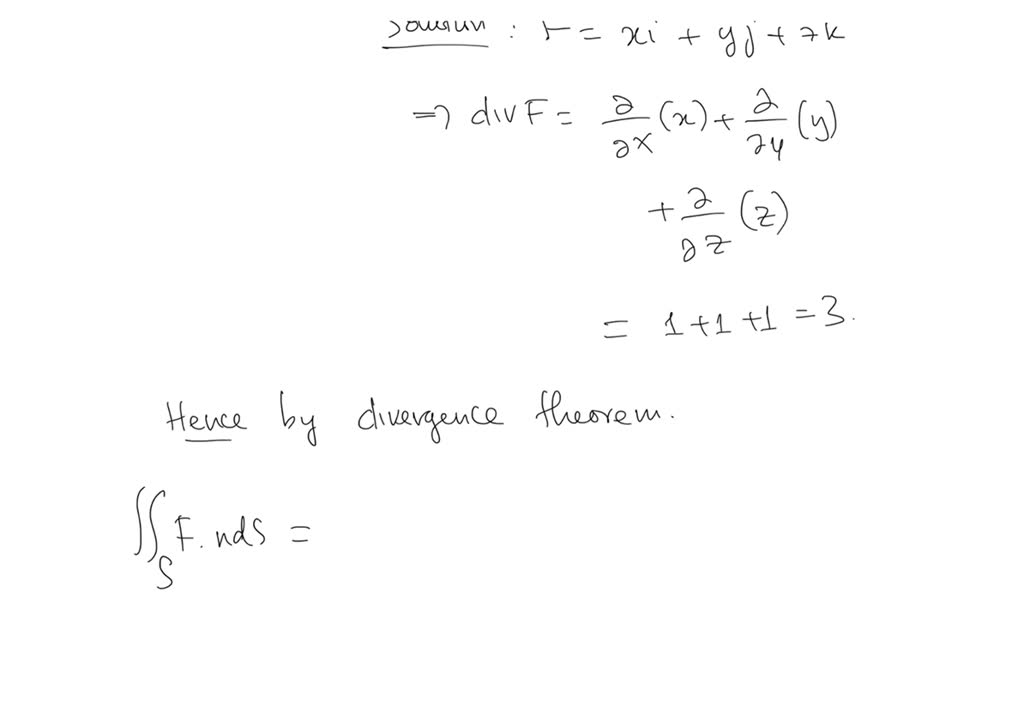 Solution : F = xi + yj + zk
⇒ div F = ∂/∂x (x) + ∂/∂y (y)
+ ∂/∂z (z)
= 1+1+1 = 3.
Hence by divergence theorem.
∬_S F. nds =